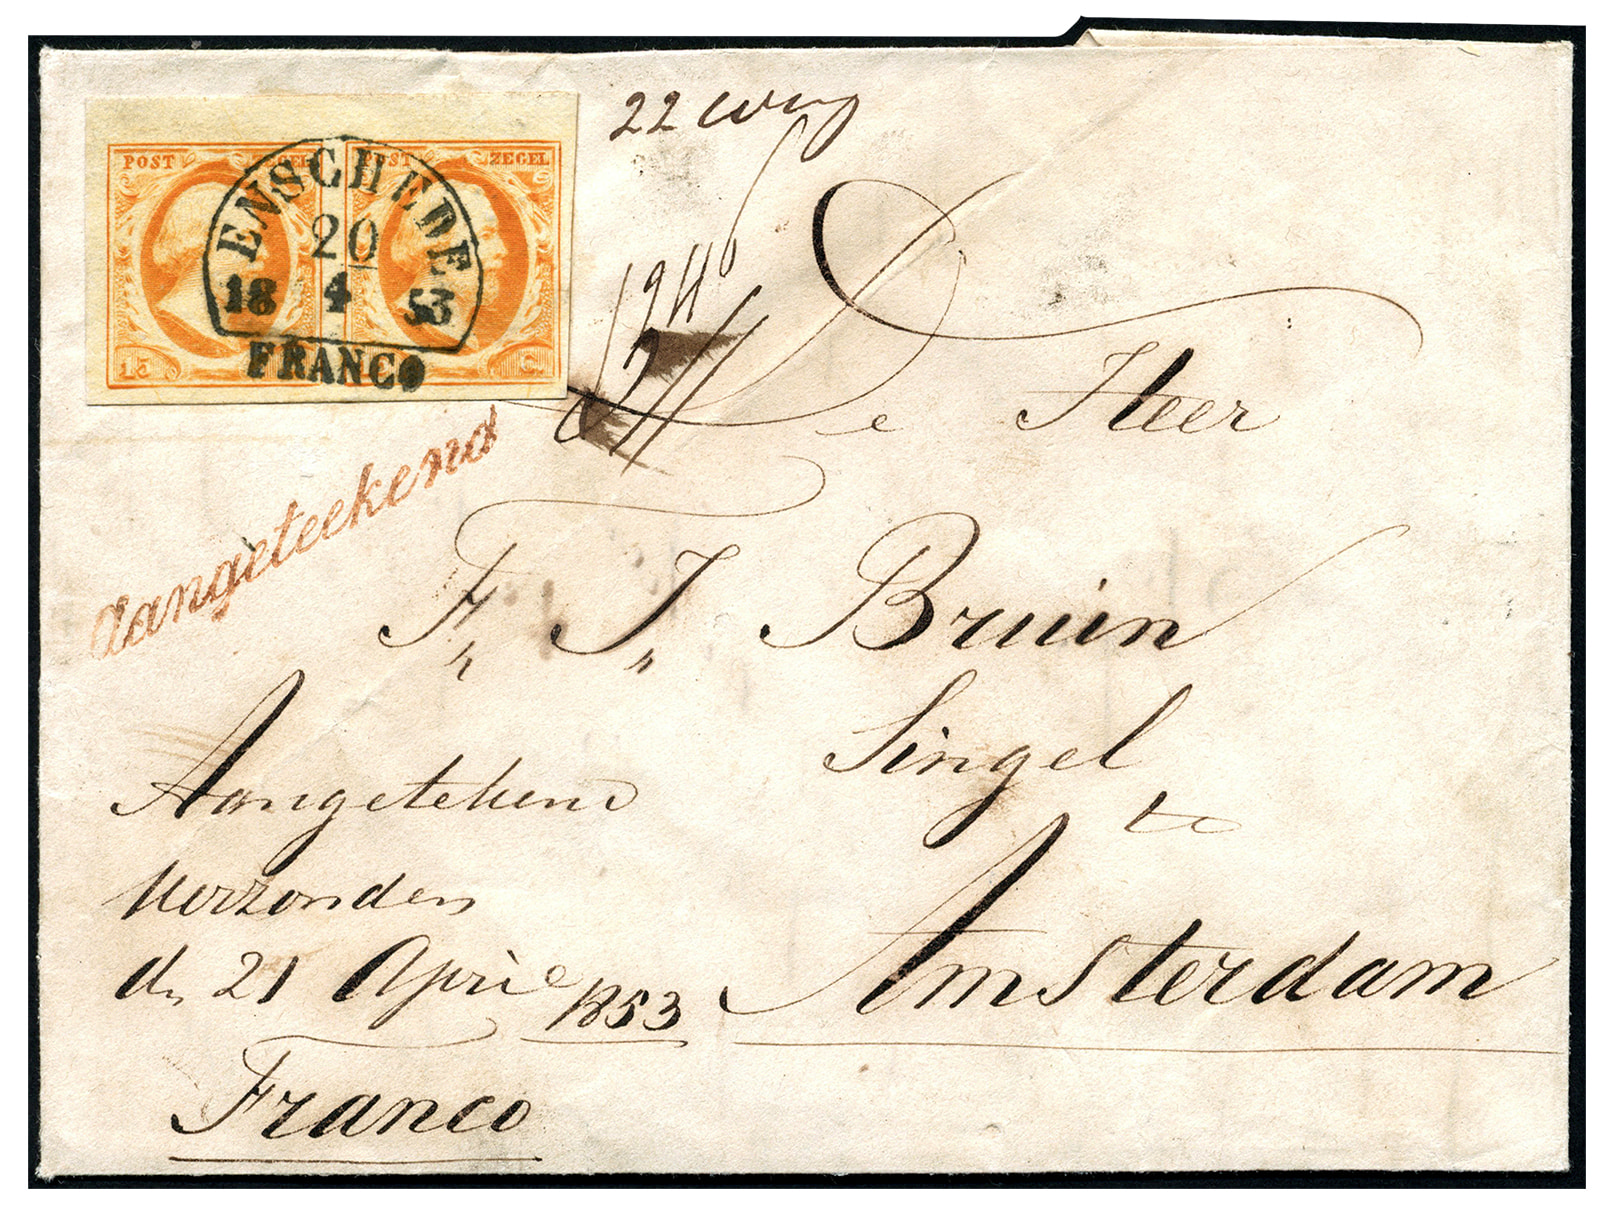 POST ZEGEL POST ZEGEL
ENSCHEDE
20
18 4 53
FRANCO
15 C.
22
Aangeteekend
De Heer
F. J. Bruin
Singel
te
Amsterdam
Aangetekend
Verzonden
dn 21 April 1853
Franco